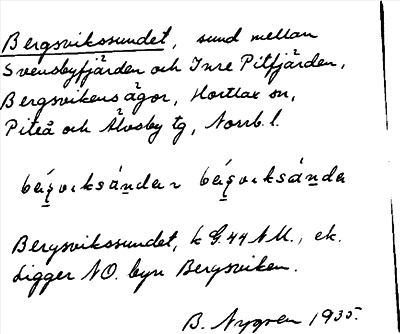 Bergsvikssundet, sund mellan
Svensbyfjärden och Inre Pitfjärden,
Bergsvikens ägor, Hortlax sn,
Piteå och Älvsby tg, Norrb. l.
Bergsvikssundet, k G. 44 N.U., ek.
Ligger NO. byn Bergsviken.
B. Nygren 1935.